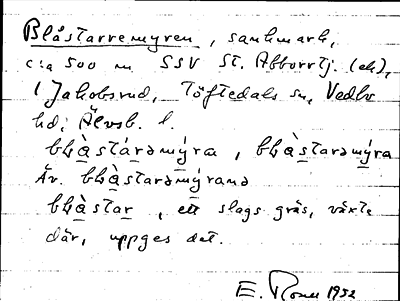 Blåstarremyren, sankmark,
c:a 500 m SSV St. Abborrtj. (ek),
i Jakobsrud, Töftedals sn, Vedbo
hd; Älvsb. l.
blàstarəmýra, blàstarəmýra
Äv. blàstarəmýranə
blàstar, ett slags gräs, växte
där, uppges det.
E. 1952